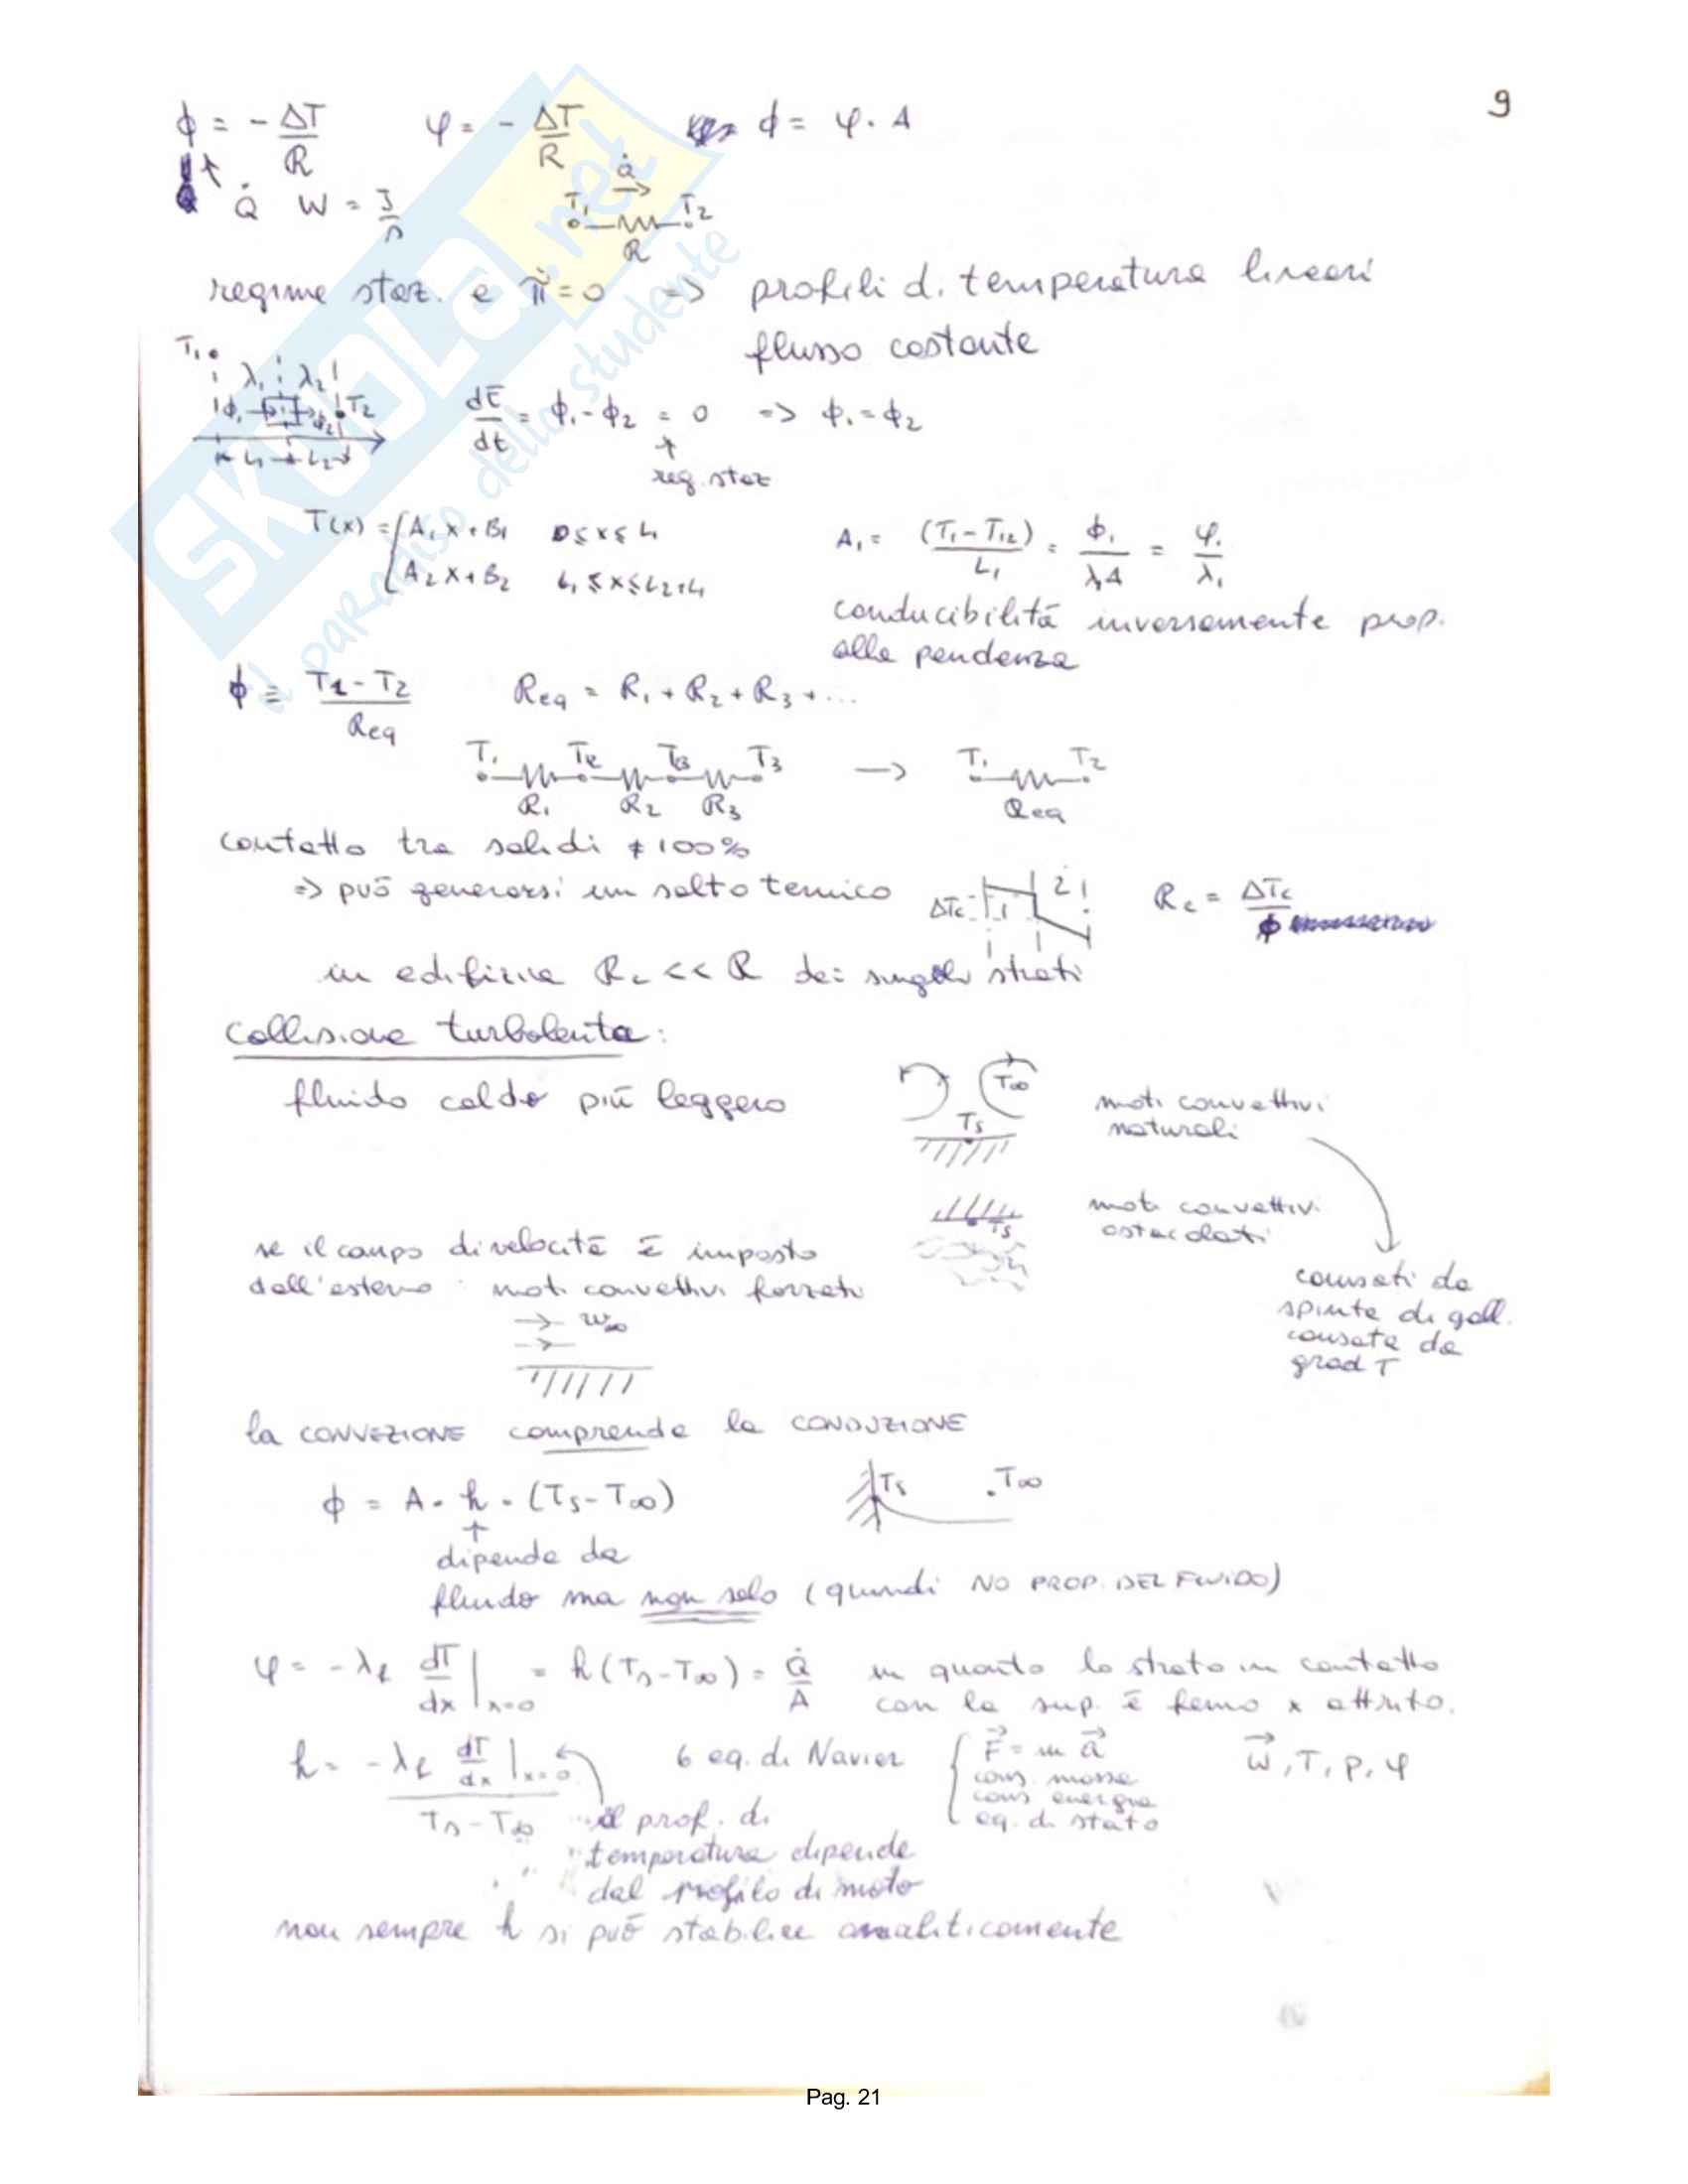 9
ϕ = - ΔT/R   φ = - ΔT/R   ϕ = φ · A
Q̇   W = J/s
Q̇
T₁   T₂
R
regime staz. e π̇ = 0 => profili di temperatura lineari
flusso costante
T₁   λ₁   λ₂
ϕ₁   ϕ₂   T₂
L₁   L₂
dE/dt = ϕ₁ - ϕ₂ = 0 => ϕ₁ = ϕ₂
reg. staz
T(x) = { A₁ x + B₁   0 ≤ x ≤ L₁
A₂ x + B₂   L₁ ≤ x ≤ L₂+L₁
A₁ = (T₁ - T₁₂)/L₁ = ϕ₁/λ₁A = φ₁/λ₁
conducibilità inversamente prop.
alla pendenza
ϕ = (T₁ - T₂)/Req   Req = R₁ + R₂ + R₃ + ...
T₁   T₃   →   T₁   T₂
R₁   R₂   R₃   Req
contatto tra solidi ≠ 100%
=> può generarsi un salto termico   ΔTc   1   2   Rc = ΔTc/ϕ
in edilizia Rc << R dei singoli strati
Collisione turbolenta:
fluido caldo più leggero
T∞
Ts
moti convettivi
naturali
Ts
moti convettivi
ostacolati
causati da
spinte di gall.
causate da
grad T
se il campo di velocità è imposto
dall'esterno : moti convettivi forzati
→ w∞
la CONVEZIONE comprende la CONDUZIONE
ϕ = A · h · (Ts - T∞)   Ts   T∞
dipende da
fluido ma non solo (quindi NO PROP. DEL FLUIDO)
φ = - λf dT/dx |x=0 = h (Ts - T∞) = Q̇/A   in quanto lo strato in contatto
con la sup. è fermo x attrito.
h = - λf dT/dx |x=0 / Ts - T∞
il prof. di
temperatura dipende
dal profilo di moto
6 eq. di Navier { F⃗ = m a⃗
cons. massa
cons energia
eq. di stato
w⃗, T, p, φ
non sempre h si può stabilire analiticamente
SKUOLA.net
il paradiso dello studente
Pag. 21